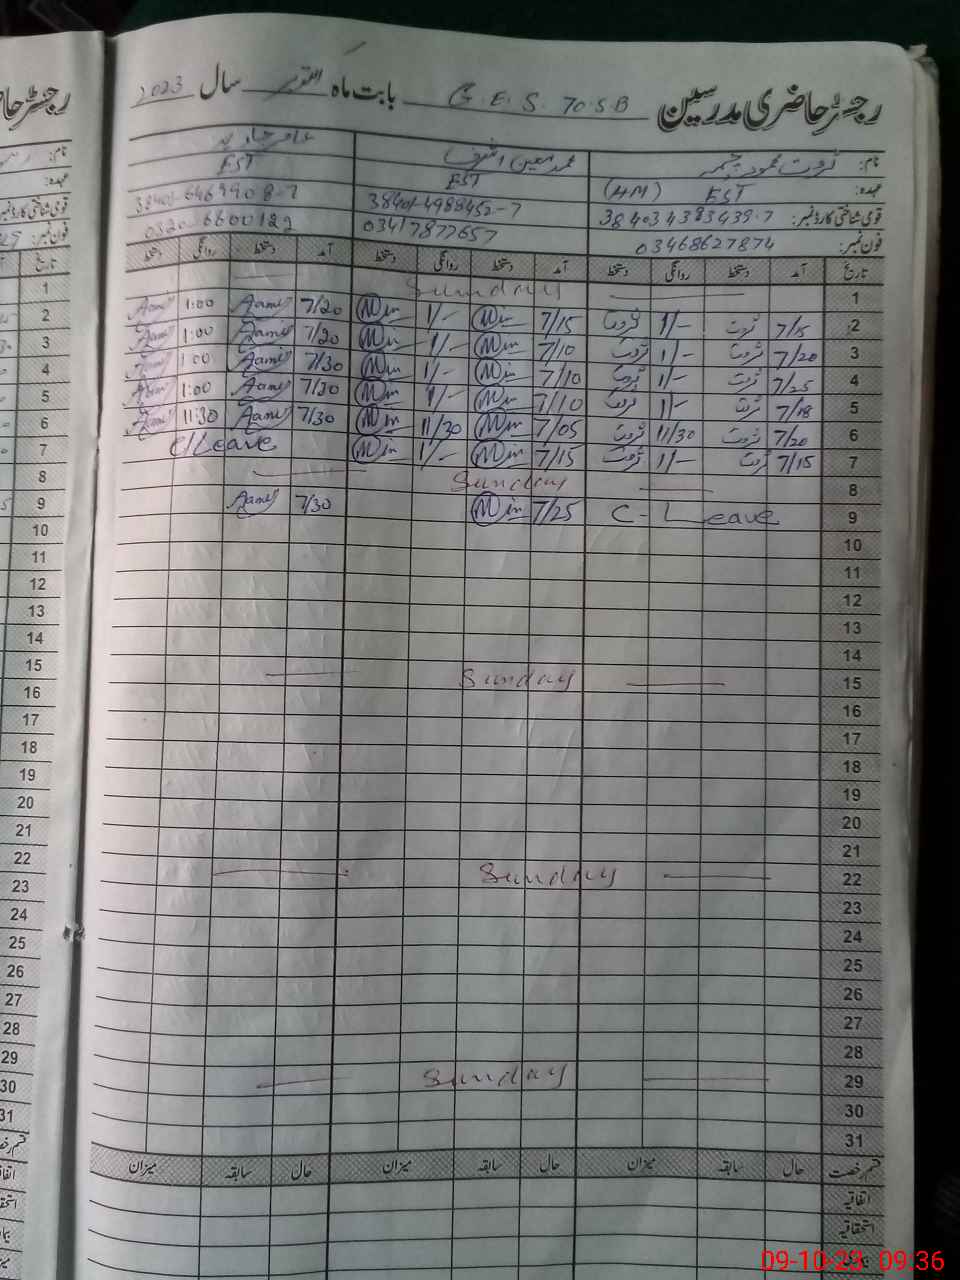 رجسٹر حاضری مدرسین G.E.S. 70.S.B بابت ماہ اکتوبر سال 2023
نام: ثروت محمود چیمہ محمد معین اشرف عامر جاوید
عہدہ: EST (HM) EST EST
قومی شناختی کارڈ نمبر: 384034383439-7 38401-4988452-7 38401-6469908-7
فون نمبر: 03468627874 03417877657 0320-6600122
تاریخ آمد دستخط روانگی دستخط آمد دستخط روانگی دستخط آمد دستخط روانگی دستخط
1 Sunday 1
2 7/15 ثروت 1/- ثروت 7/15 Moin 1/- Moin 7/20 Aamir 1:00 Aamir 2
3 7/20 ثروت 1/- ثروت 7/10 Moin 1/- Moin 7/20 Aamir 1:00 Aamir 3
4 7/25 ثروت 1/- ثروت 7/10 Moin 1/- Moin 7/30 Aamir 1:00 Aamir 4
5 7/18 ثروت 1/- ثروت 7/10 Moin 1/- Moin 7/30 Aamir 1:00 Aamir 5
6 7/20 ثروت 11/30 ثروت 7/05 Moin 11/30 Moin 7/30 Aamir 11:30 Aamir 6
7 7/15 ثروت 1/- ثروت 7/15 Moin 1/- Moin C/Leave 7
8 Sunday 8
9 C-Leave 7/25 Moin 7/30 Aamir 9
10 10
11 11
12 12
13 13
14 14
15 Sunday 15
16 16
17 17
18 18
19 19
20 20
21 21
22 Sunday 22
23 23
24 24
25 25
26 26
27 27
28 28
29 Sunday 29
30 30
31 31
قسم رخصت حال سابقہ میزان حال سابقہ میزان حال سابقہ میزان
اتفاقیہ
استحقاقیہ
09-10-23 09:36